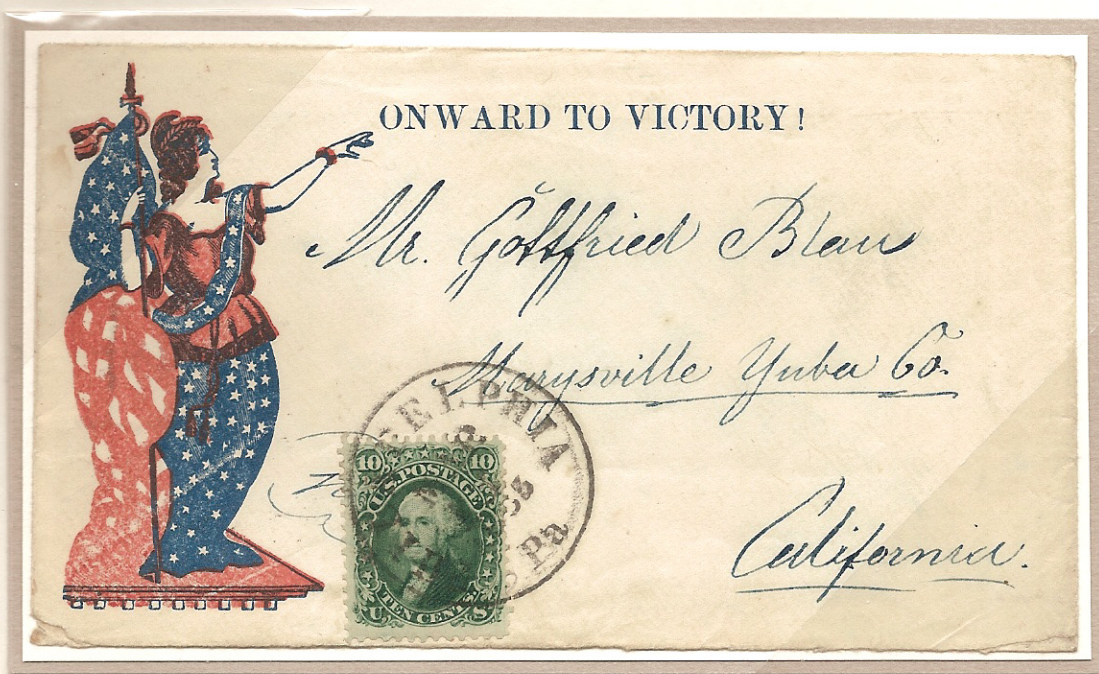 ONWARD TO VICTORY!
Mr. Gottfried Blau
Marysville Yuba Co.
California.
DELPHIA
Pa
10 10
U.S. POSTAGE
TEN CENTS
U S